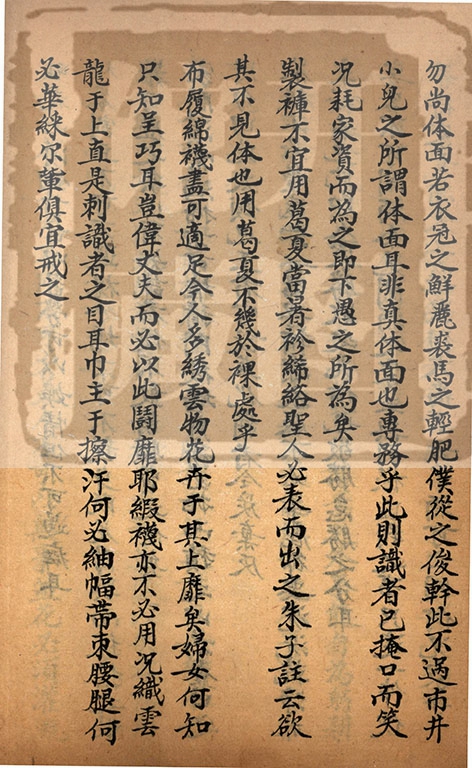 勿尚体面若衣冠之鮮麗裘馬之輕肥僕從之俊幹此不過市井
小兒之所謂体面耳非真体面也専務乎此則識者已掩口而笑
况耗家資而為之即下愚之所為矣
製褲不宜用葛夏當暑袗絺綌聖人必表而出之朱子註云欲
其不見体也用葛夏不幾於裸處乎
布履綿襪盡可適足今人名綉雲物花卉于其上靡矣婦女何知
只知呈巧耳豈偉丈夫而必以此鬪靡耶緞襪亦不必用况織雲
龍于上直是刺識者之目耳巾主于擦汗何必紬幅帶束腰腿何
必華綵尔輩俱宜戒之